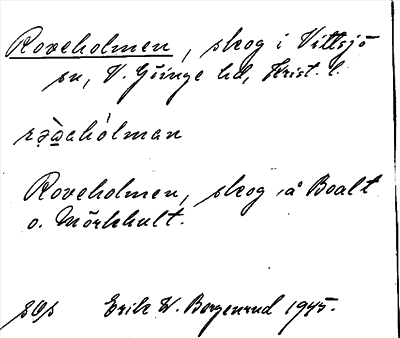 Roveholmen, skog i Vittsjö
sn, V. Göinge hd, Krist. l.
Roveholmen, skog å Boalt
o. Mörkhult.
Erik W. Borgenrud 1945.